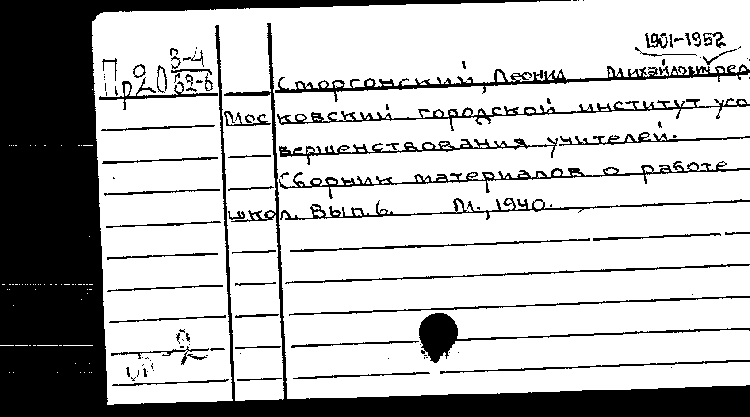 1901-1952
Пр20 3-4
62-6
Сморгонский, Леонид Михайлович ред
Московский городской институт усо
вершенствования учителей.
Сборник материалов о работе
школ. Вып. 6. М., 1940.